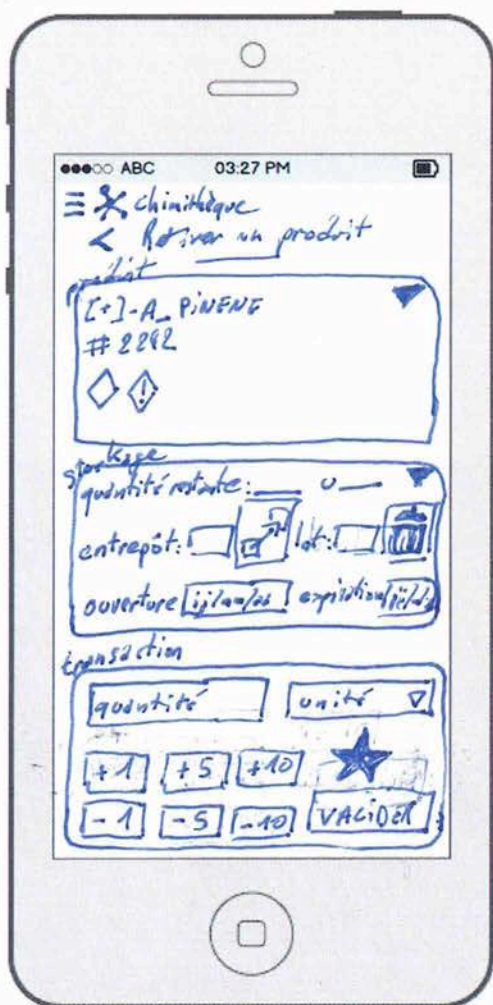 ABC 03:27 PM
chimithèque
< Retirer un produit
produit
[+]-A_PINENE
#2292
!
stockage
quantité restante: ___ U ___
entrepôt: lot:
ouverture jj/mm/aa expiration
transaction
quantité unité
+1 +5 +10
-1 -5 -10 VALIDER